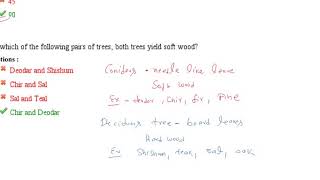 45
90
which of the following pairs of trees, both trees yield soft wood?
tions :
Deodar and Shishum
Chir and Sal
Sal and Teal
Chir and Deodar
Conifers - needle like leave
Soft wood
Ex - deodar, Chir, fir, Pine
Deciduous tree - board leaves
Hard wood
Ex Shishum, teak, Sal, oak